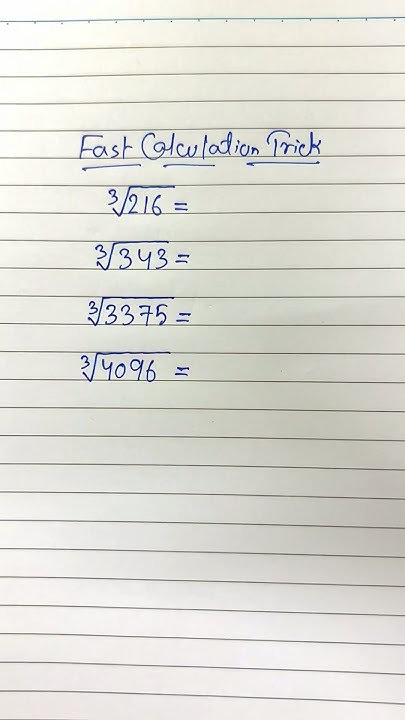 Fast Calculation Trick
∛216 =
∛343 =
∛3375 =
∛4096 =